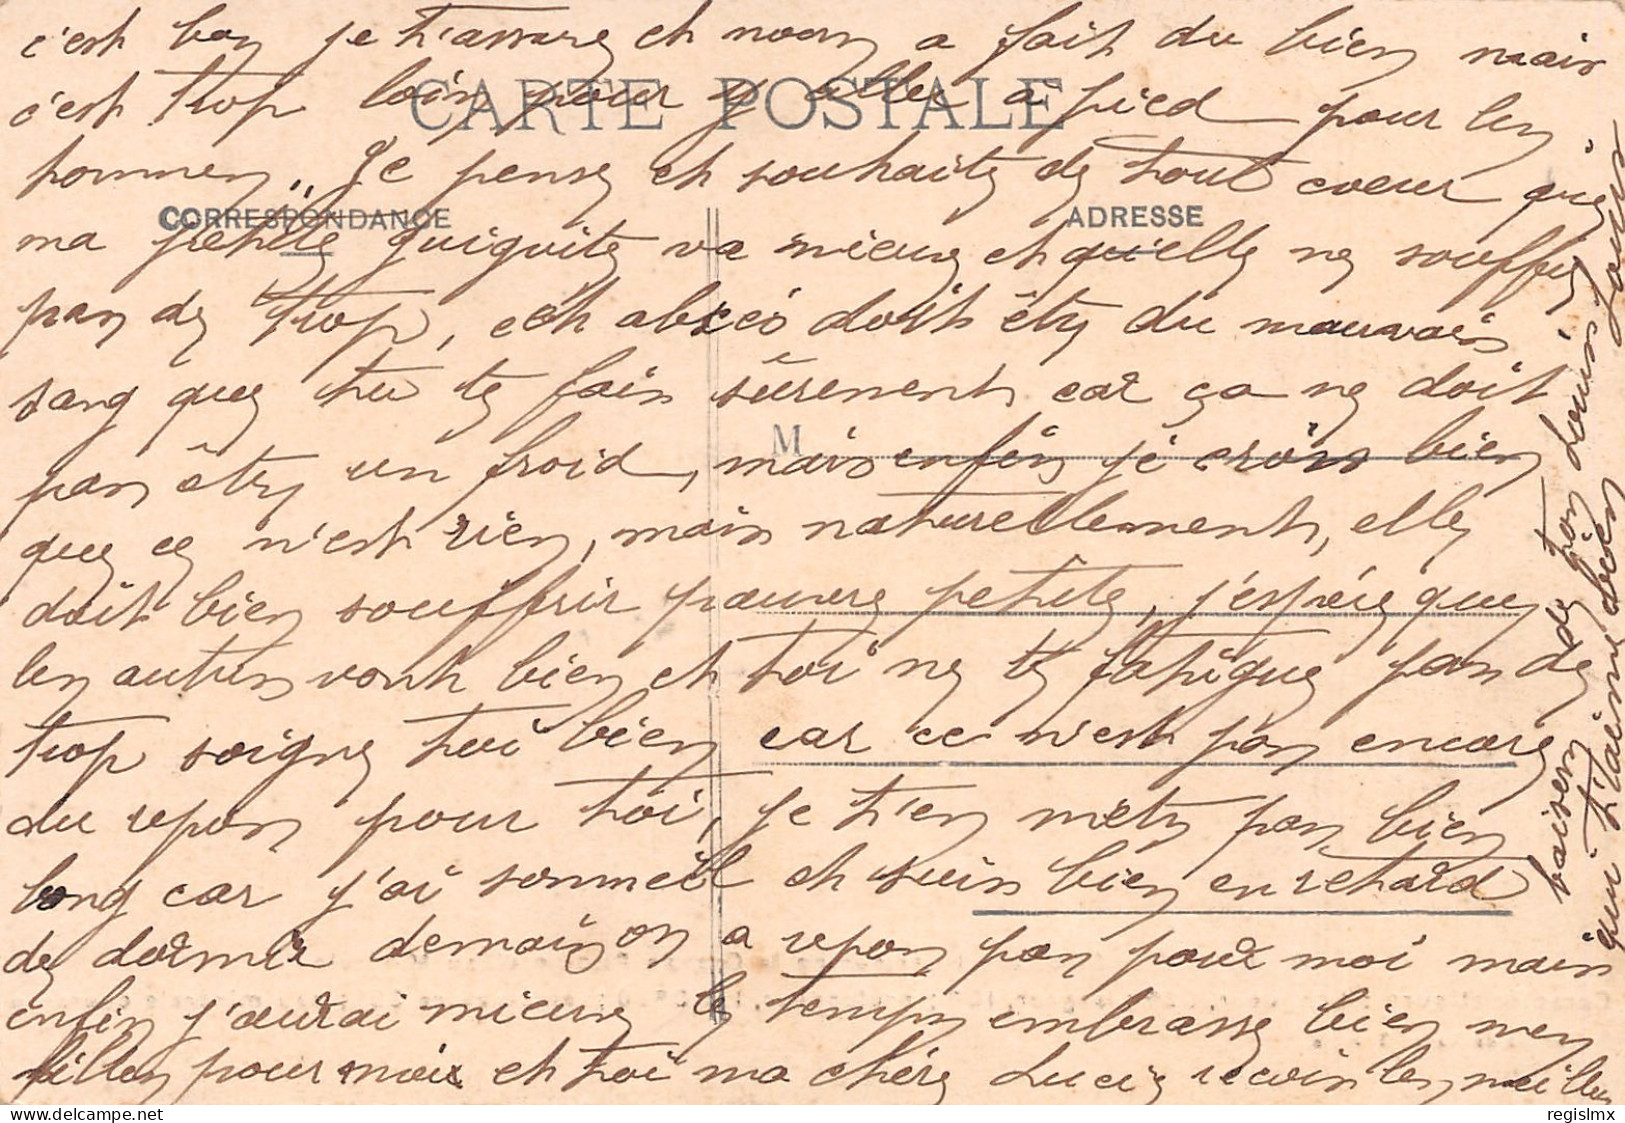 c'est bon je t'assure et nous a fait du bien mais
CARTE POSTALE
c'est trop loin pour y aller à pied pour les
hommes. Je pense et souhaite de tout coeur que
CORRESPONDANCE
ADRESSE
ma petite quiquite va mieux et qu'elle ne souffre
pas de trop, cet abcès doit être du mauvais
sang que tu te fais sûrement car ça ne doit
M
pas être un froid, mais enfin je crois bien
que ce n'est rien, mais naturellement, elle
doit bien souffrir pauvre petite, j'espère que
les autres vont bien et toi ne te fatigue pas de
trop soigne toi bien car ce n'est pas encore
du repos pour toi, je t'en mets pas bien
long car j'ai sommeil et suis bien en retard
de dormir demain on a repos pas pour moi mais
enfin j'aurai mieux le temps embrasse bien mes
filles pour moi et toi ma chère Lucie recois les meilleurs
baisers de ton Louis
qui t'aime bien Louis
regislmx